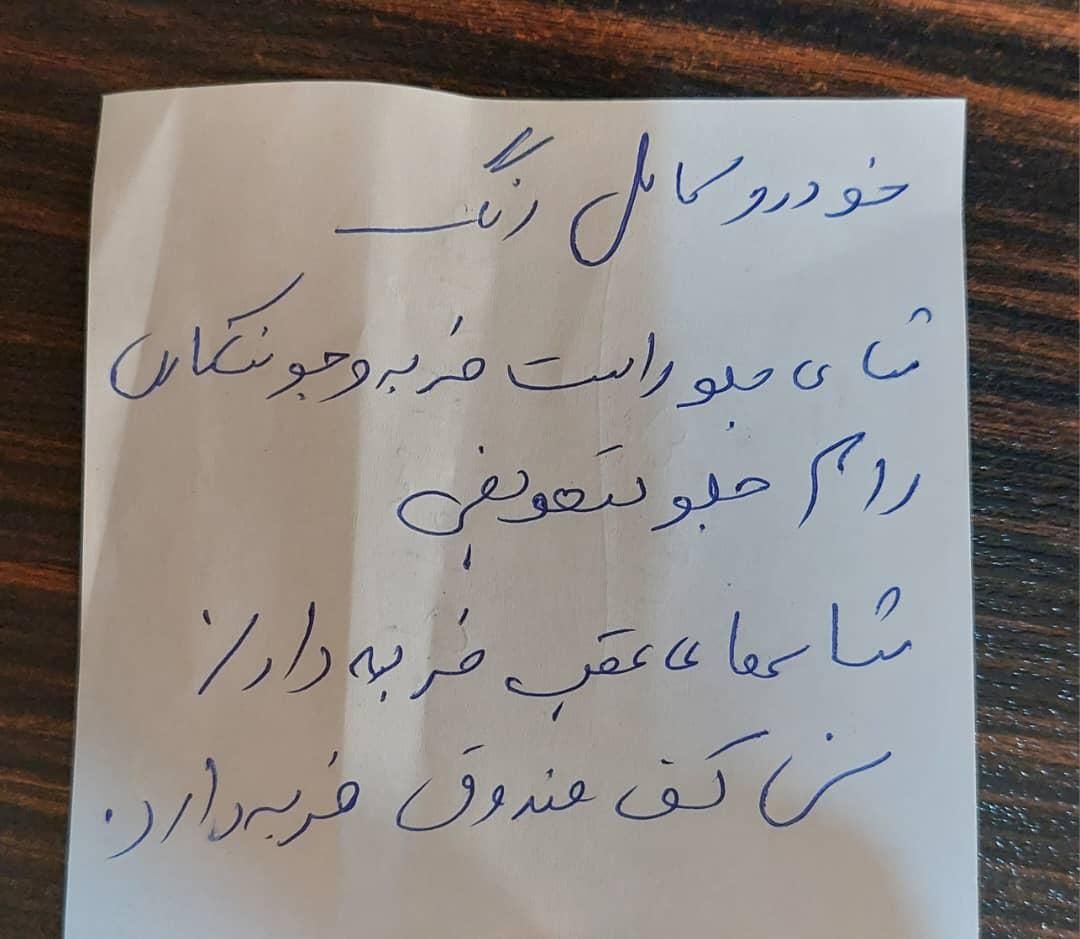 خودرو کامل رنگ
شاسی جلو راست ضربه و جوشکاری
رام جلو تعویض
شاسی‌های عقب ضربه دارد
سینی کف صندوق ضربه دارد.